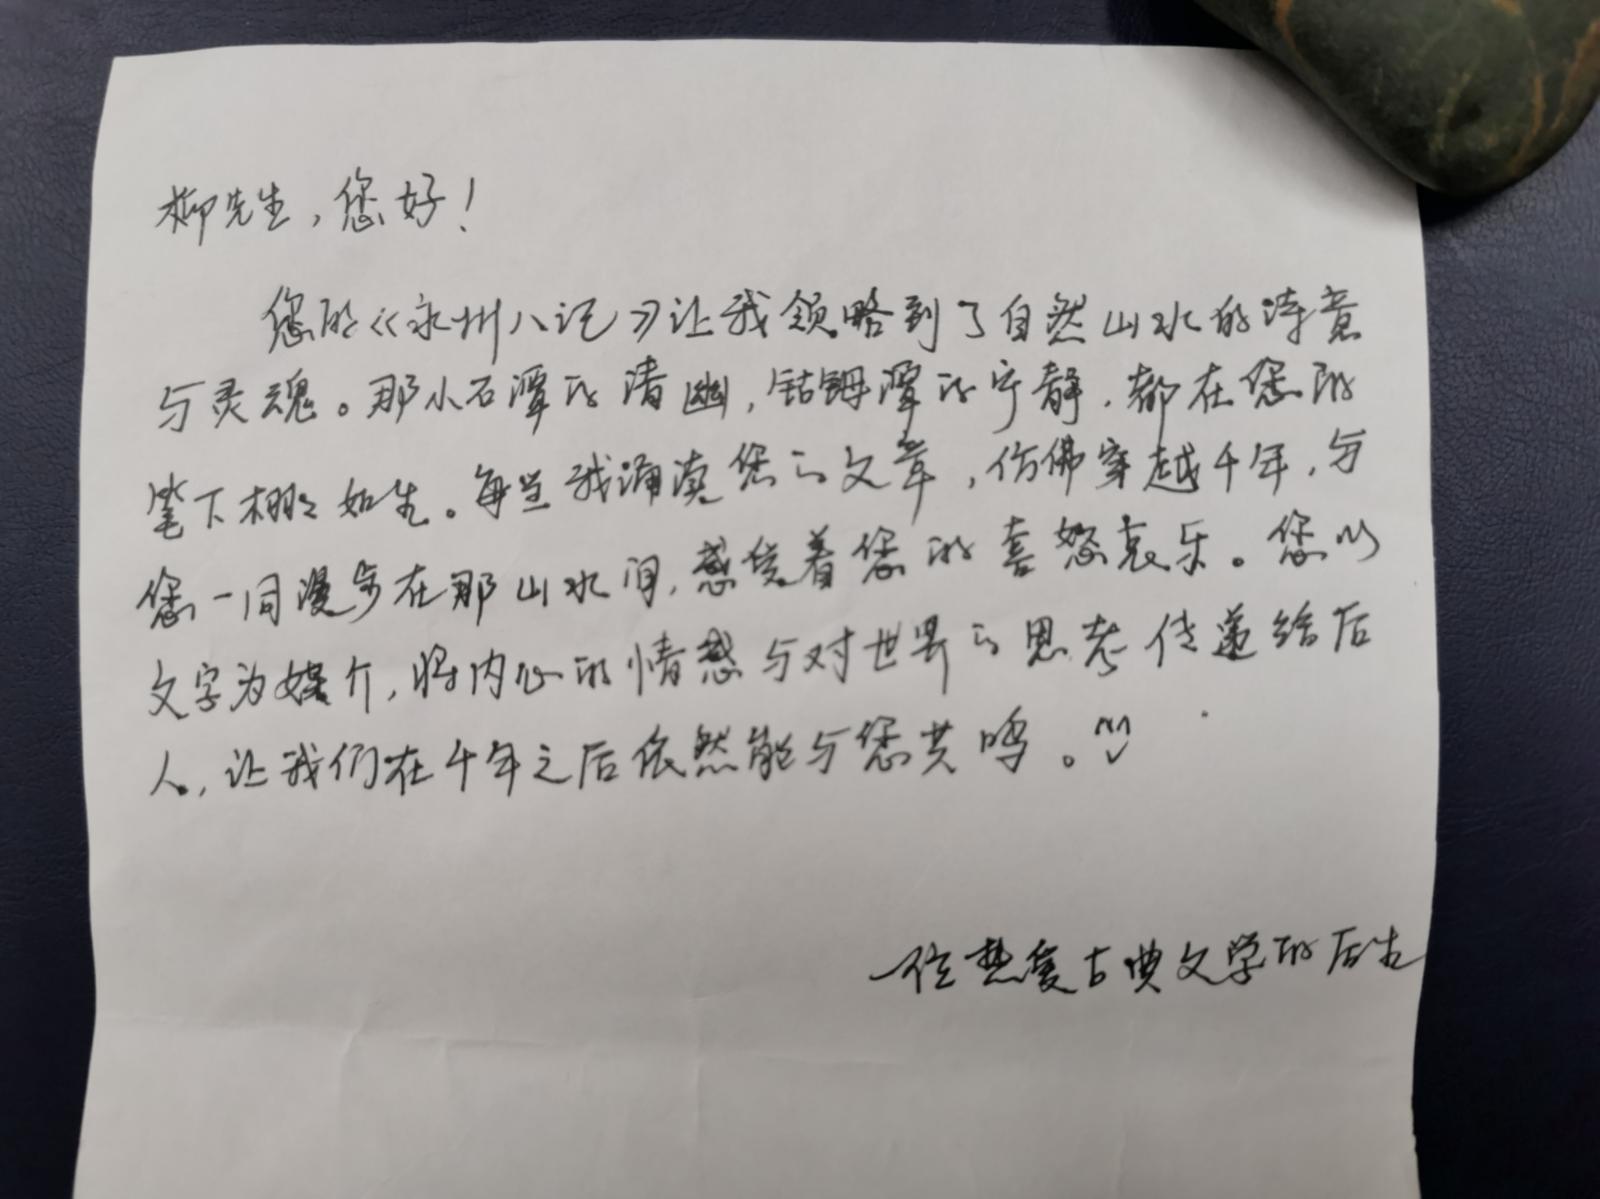 柳先生，您好！
您的《永州八记》让我领略到了自然山水的诗意
与灵魂。那小石潭的清幽，钴鉧潭的宁静，都在您的
笔下栩栩如生。每当我诵读您的文章，仿佛穿越千年，与
您一同漫步在那山水间，感受着您的喜怒哀乐。您以
文字为媒介，将内心的情感与对世界的思考传递给后
人，让我们在千年之后依然能与您共鸣。
一位热爱古典文学的后生